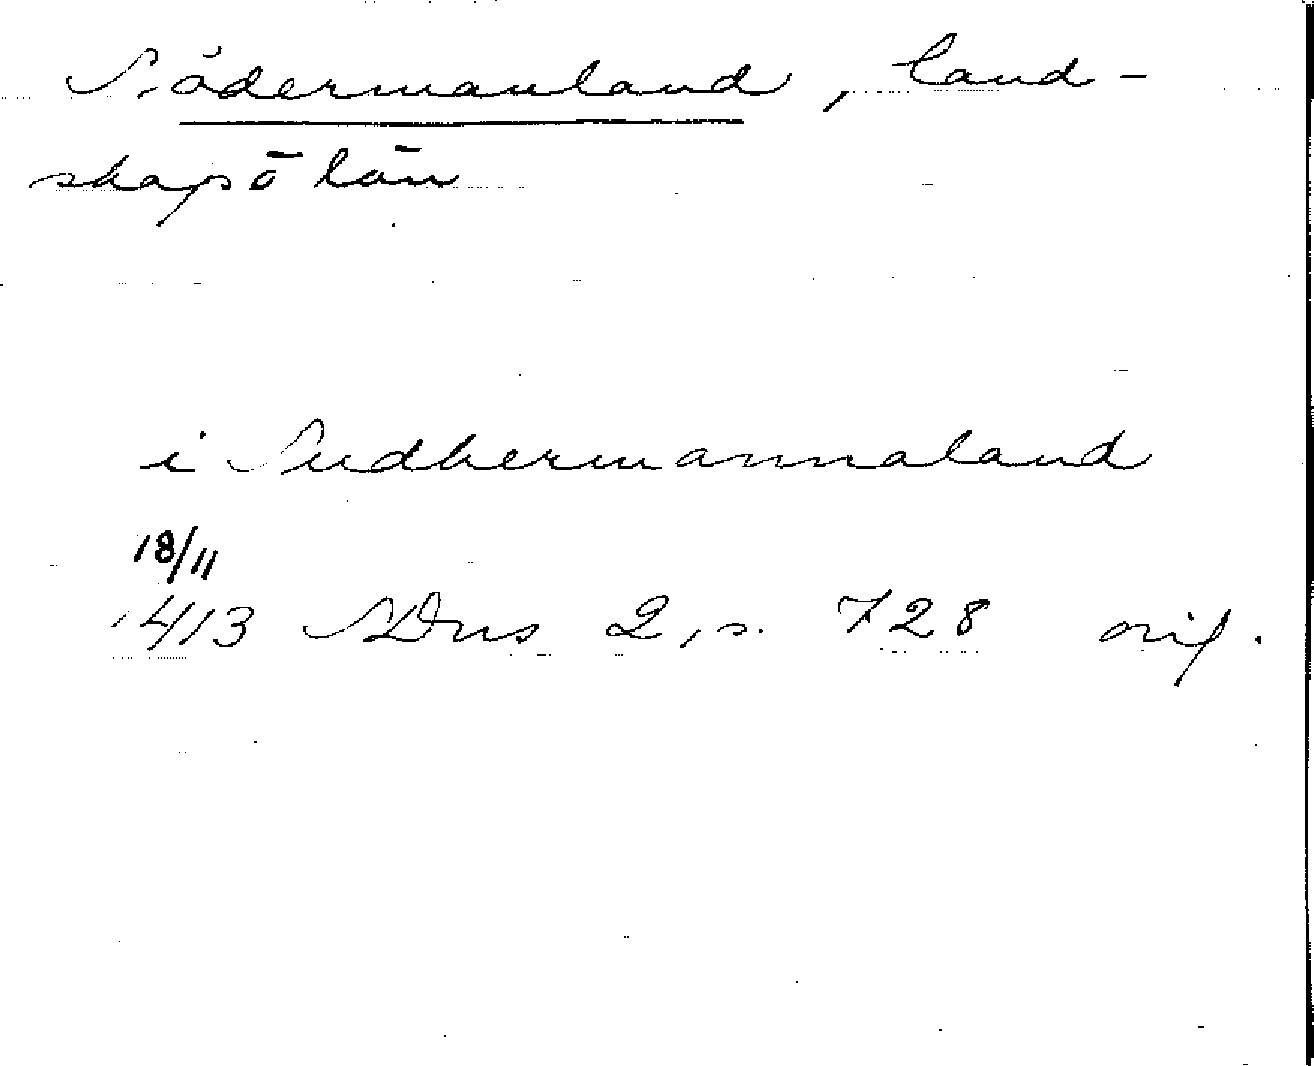 Södermanland, land-
skap ö län
i Sudhermannaland
18/11
1413 SDns 2, s. 728 orig.